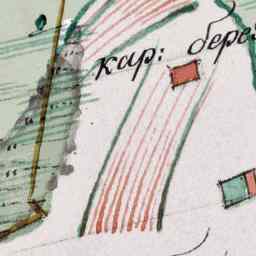 кар: берез